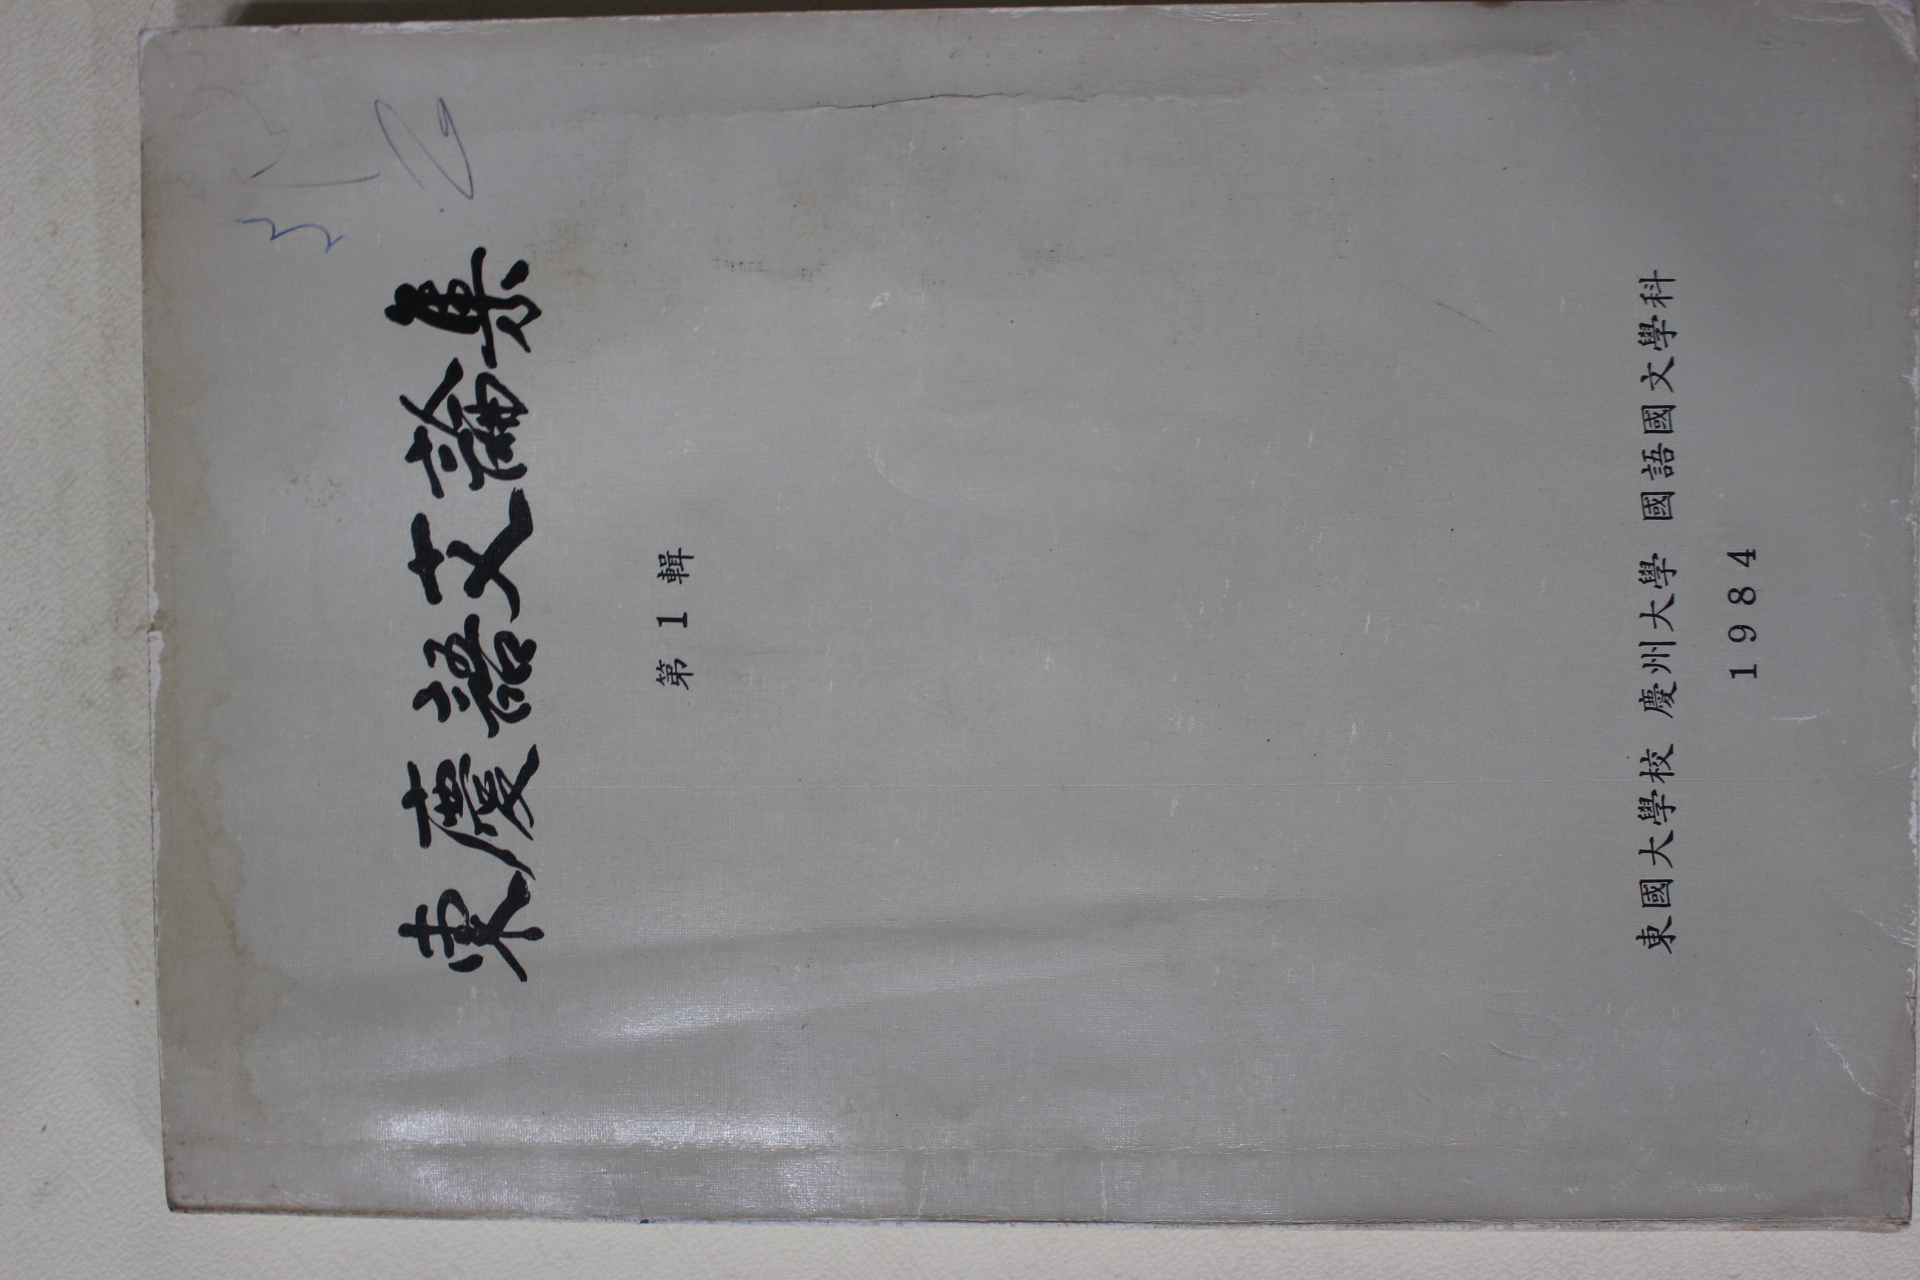 東慶語文論集
第 1 輯
東國大學校 慶州大學 國語國文學科
1984